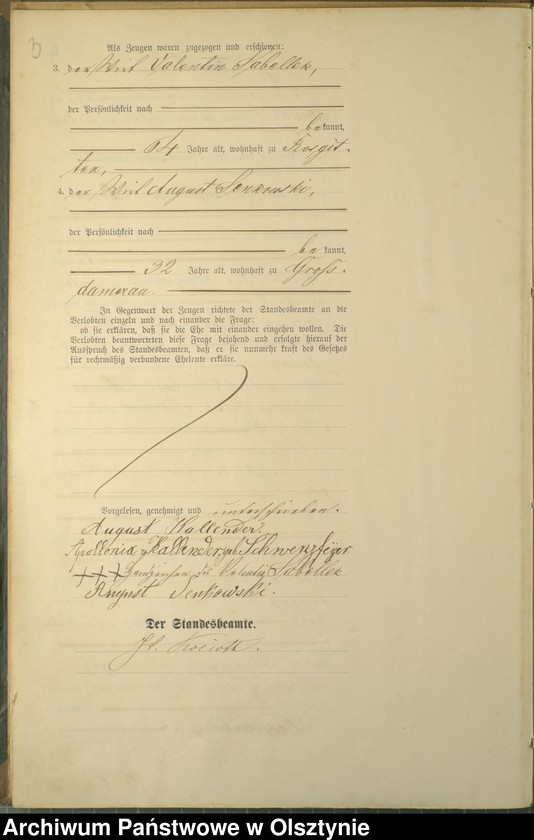 3
Als Zeugen waren zugezogen und erschienen:
3. der Wirt Valentin Sabellek,
der Persönlichkeit nach
bekannt,
64 Jahre alt, wohnhaft zu Kosgit-
ten,
4. der Wirt August Senkowski,
der Persönlichkeit nach
be kannt,
32 Jahre alt, wohnhaft zu Groß-
damerau
In Gegenwart der Zeugen richtete der Standesbeamte an die
Verlobten einzeln und nach einander die Frage:
ob sie erklären, daß sie die Ehe mit einander eingehen wollen. Die
Verlobten beantworteten diese Frage bejahend und erfolgte hierauf der
Ausspruch des Standesbeamten, daß er sie nunmehr kraft des Gesetzes
für rechtmäßig verbundene Eheleute erkläre.
Vorgelesen, genehmigt und unterschrieben.
August Kallender.
Apollonia Kallender, geb. Schwenzfeger
+++ Handzeichen des Valentin Sabellek
August Senkowski.
Der Standesbeamte.
Archiwum Państwowe w Olsztynie